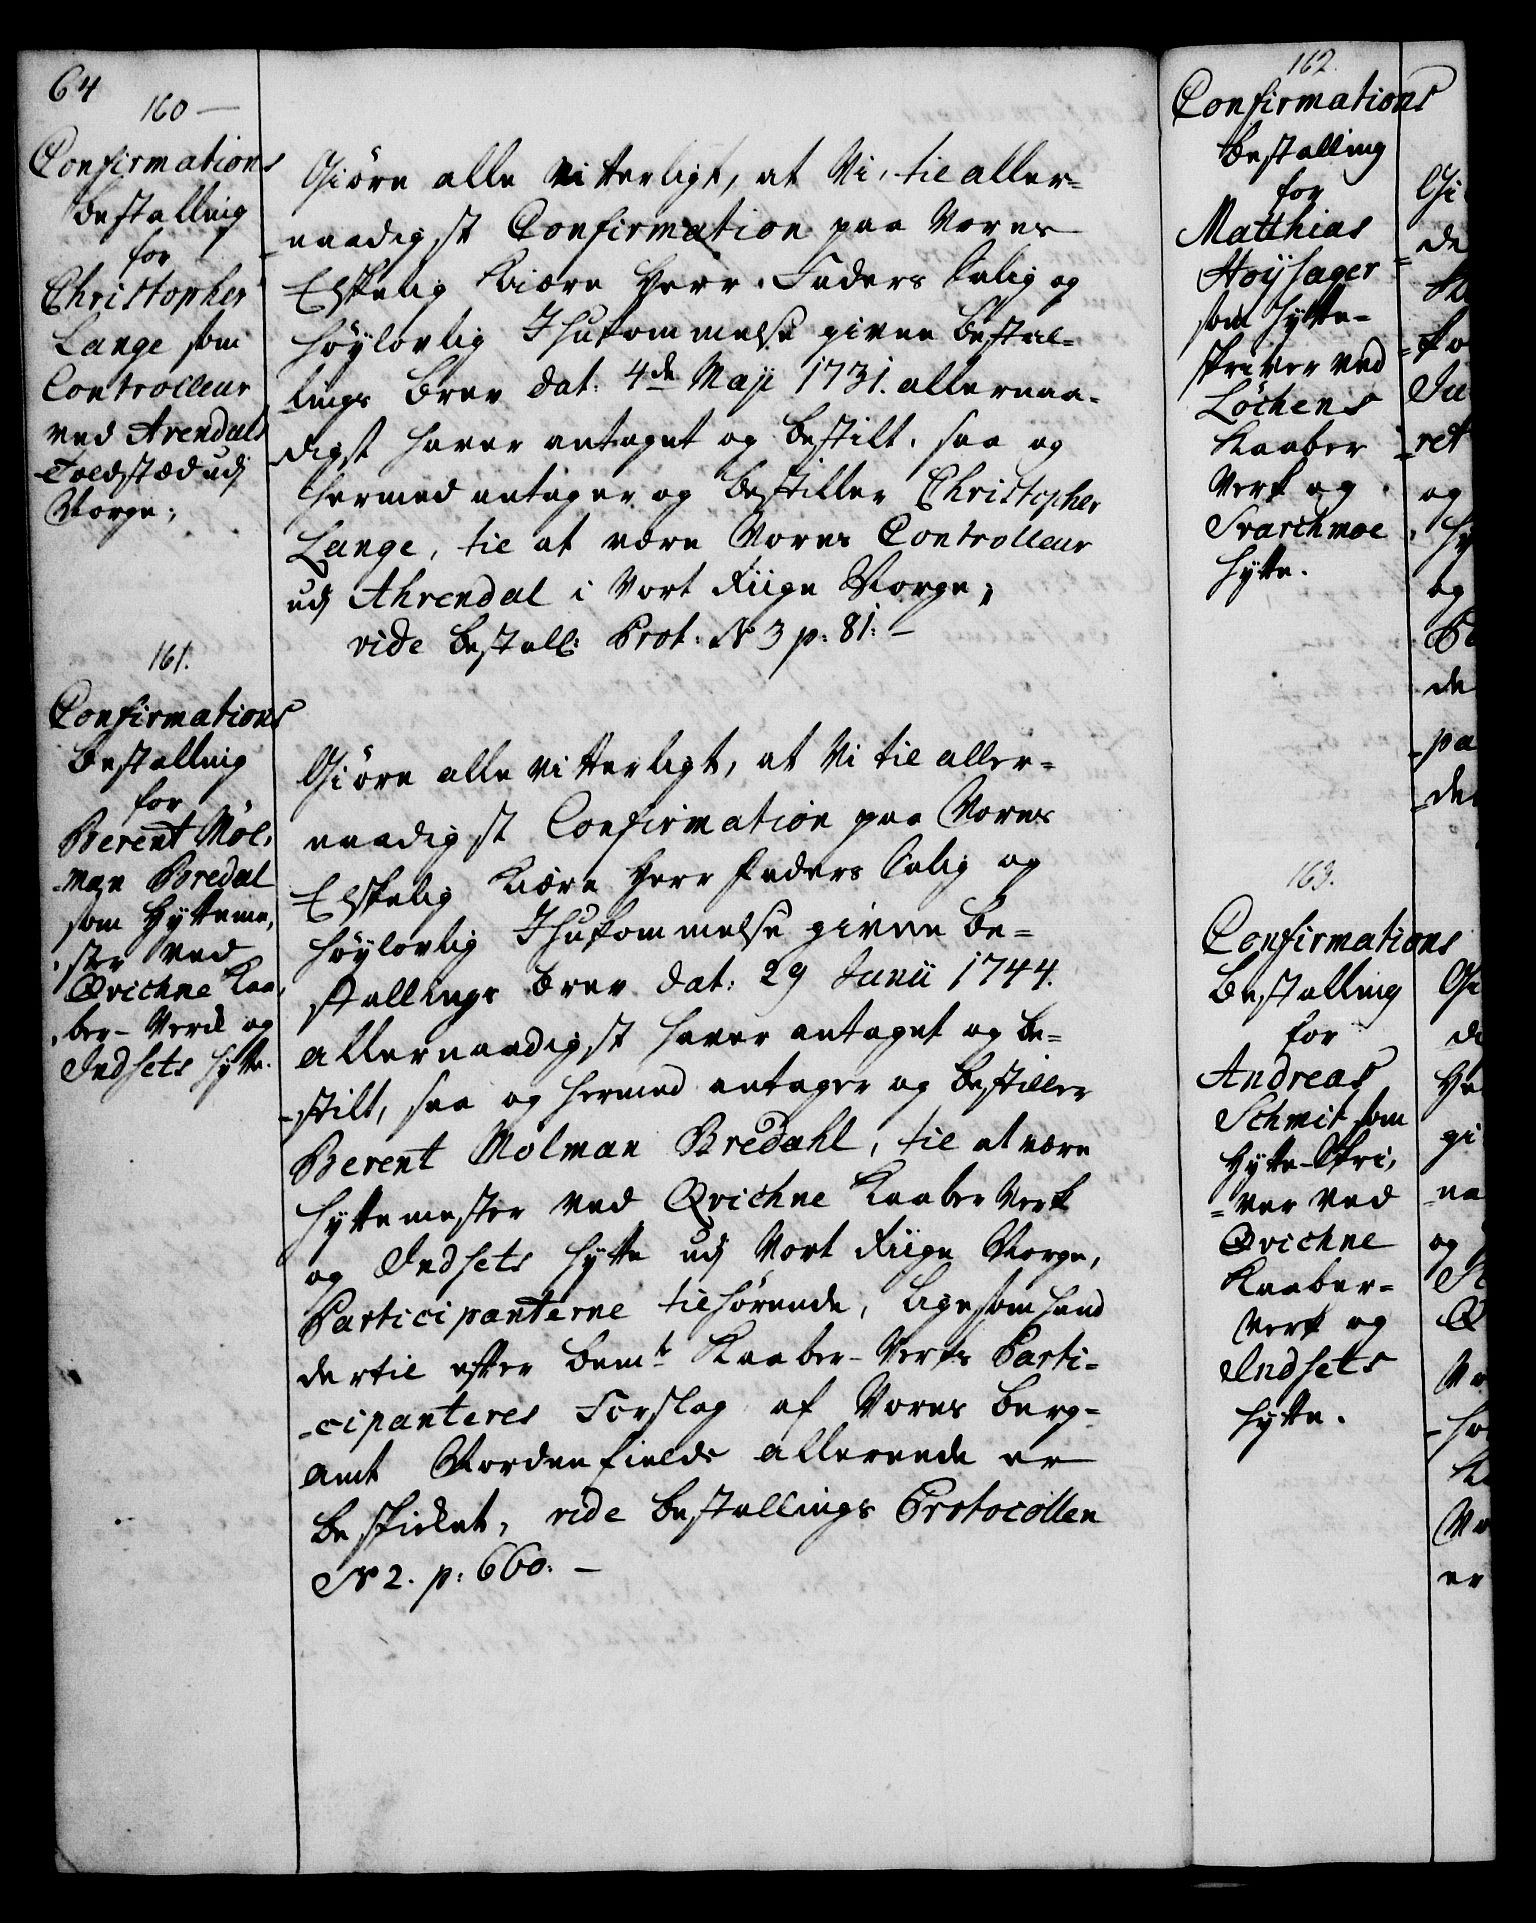 64
160 —
Confirmations
Bestalling
for
Christopher
Lange som
Controlleur
ved Arendals
Toldstæd udj
Norge;
Giöre alle vitterligt, at Vi, til aller=
naadigst Confirmation paa Vores
Elskelig Kiære Herr Faders Salig og
Höylovlig Ihukommelse givne Bestal=
lings Brev dat: 4de Maji 1731. allernaa=
digst haver antaget og bestilt, saa og
hermed antager og bestiller Christopher
Lange, til at være Vores Controlleur
udj Ahrendal i Vort Riige Norge;
vide Bestall: Prot: No 3 p: 81: —
161.
Confirmations
Bestalling
for
Berent Möl=
man Bredal
som Hytteme,
ster ved
Qvichne Kaa,
ber-Verck og
Indsets Hytte.
Giöre alle vitterligt, at Vi til aller=
naadigst Confirmation paa Vores
Elskelig Kiære Herr Faders Salig og
Höylovlig Ihukommelse givne Be=
stallings Brev dat: 29 Junii 1744.
allernaadigst haver antaget og be=
stilt, saa og hermed antager og bestiller
Berent Mölman Bredahl, til at være
Hyttemester ved Qvichne Kaaber Verk
og Indsets Hytte udj Vort Riige Norge,
Participanterne tilhörende, ligesom hand
dertil efter bemte Kaaber-Verks Parti=
cipanteres Forslag af Vores Berg=
amt Nordenfields allerede er
beskicket, vide Bestallings Protocollen
No 2. p: 660: —
162.
Confirmations
Bestalling
for
Matthias
Höysager
som Hytte=
skriver ved
Löchens
Kaaber
Verk og
Svarchmoe
Hytte.
163.
Confirmations
Bestalling
for
Andreas
Schmit som
Hytte-Skri,
ver ved
Qvichne
Kaaber=
Verk og
Indsets
Hytte.